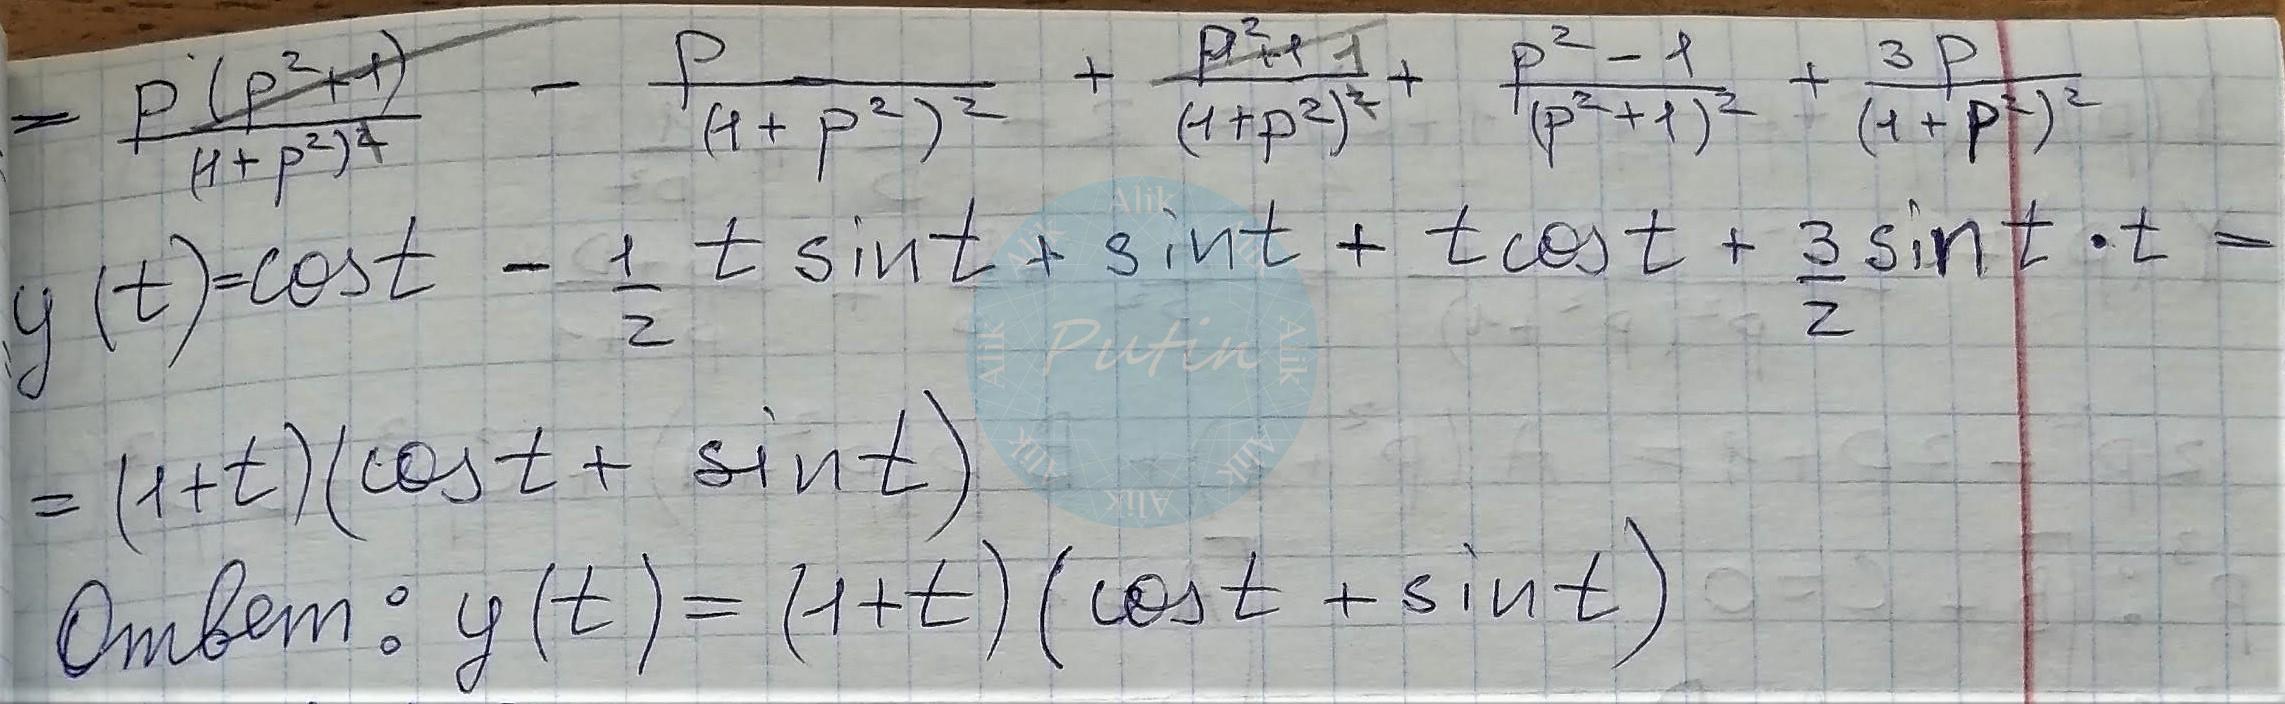 = p(p²+1)/(1+p²)² - p/(1+p²)² + p²+1 1/(1+p²)² + p²-1/(p²+1)² + 3p/(1+p²)²
y(t)=cost - 1/2 t sint + sint + t cost + 3/2 sint·t =
= (1+t)(cost + sint)
Ответ: y(t) = (1+t)(cost + sint)
Alik Alik Alik Alik Alik Alik Alik Alik
Putin